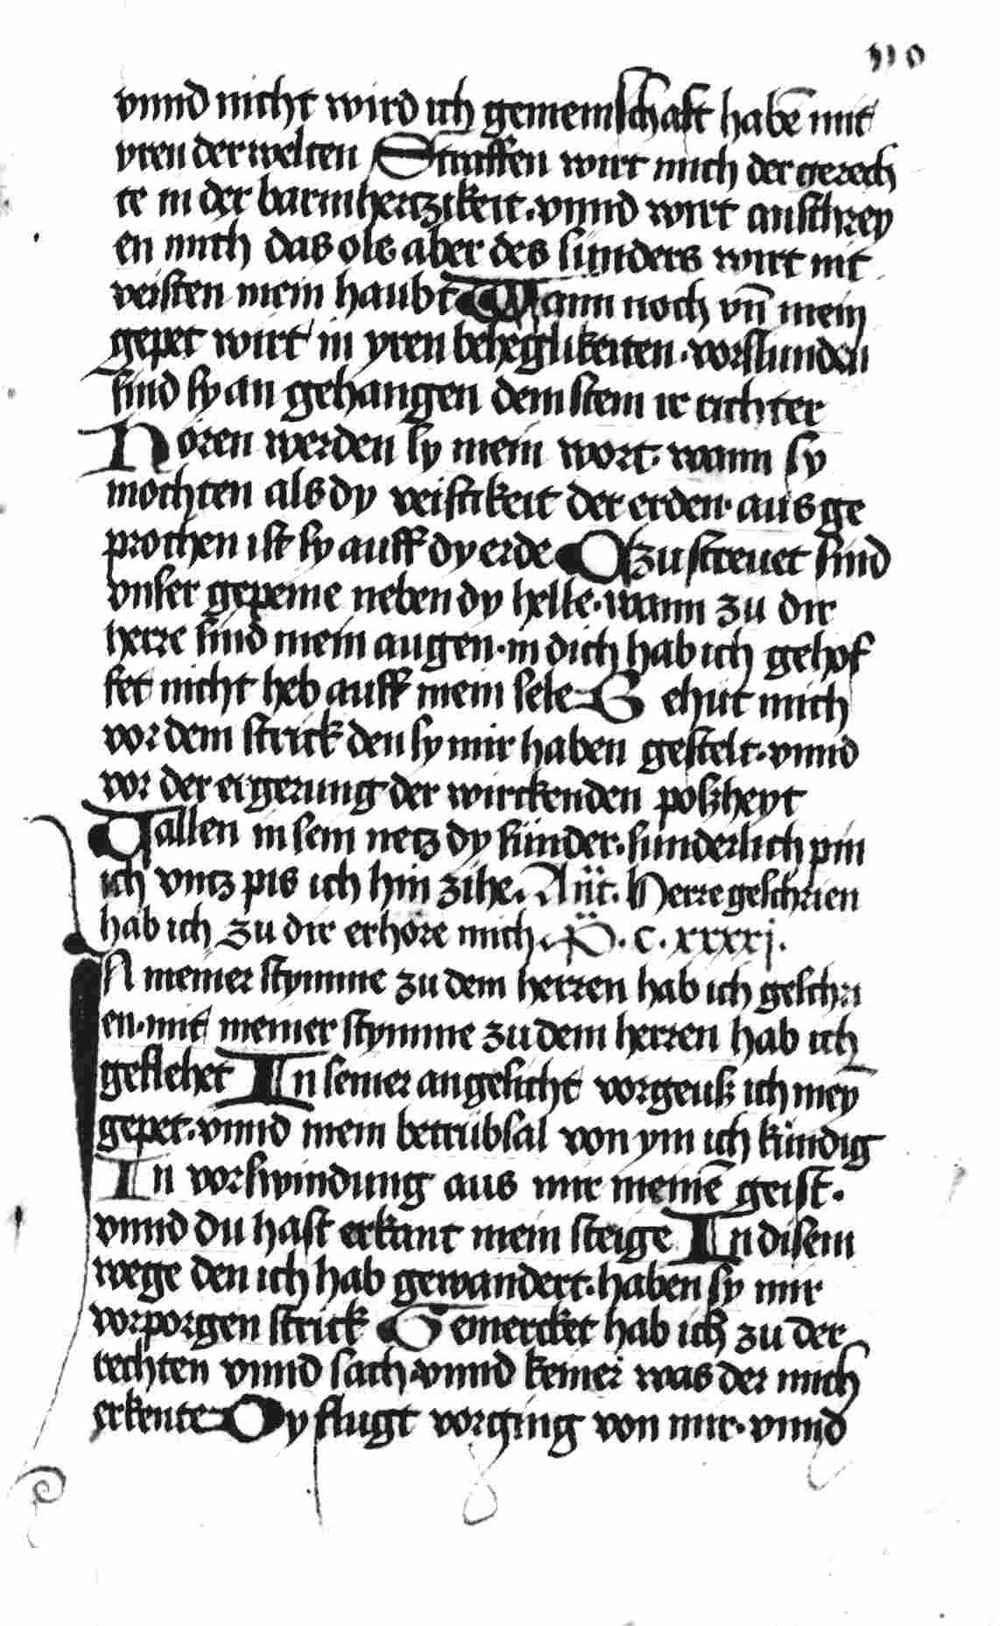 110
vnnd nicht wird ich gemeinschaft habē mit
yren derwelten Straffen wirt mich der gerech
te in der barmhertzikeit. vnnd wirt anschrey
en mich das ole. aber des sunders wirt nit
veisten mein haubt Wann noch vn̄ mein
gepet wirt in yren beheglikeiten. vorslunden
sind sy an gehangen dem stein ir richter
Horen werden sy mein wort. wann sy
mochten als dy veistikeit der erden. aus ge
prochen ist sy auff dy erde Czustreuet sind
vnser gepeine neben dy helle. wann zu dir
herre sind mein augen. in dich hab ich gehof
fet nicht heb auff mein sele Behut mich
vor dem strick den sy mir haben gestelt. vnnd
vor der ergerung der wirckenden poszheyt
Vallen in sein netz dy sünder. sunderlich pin
ich vntz pis ich hin zihe. Ant. Herre geschrien
hab ich zu dir erhöre mich. Ps. c. xxxxj.
In meiner stymme zu dem herren hab ich geschri
en. mit meiner stymme zu dem herren hab ich
geflehet In seiner angesicht vorgeusz ich mey̅
gepet. vnnd mein betrübsal von ym ich kündig
In vorswindung aus mir meinē geist.
vnnd du hast erkant mein steige In disem
wege den ich hab gewandert. haben sy mir
vorporgen strick Gemercket hab ich zu der
rechten vnnd sach. vnnd keiner was der mich
erkente Dy flugt vorging von mir. vnnd